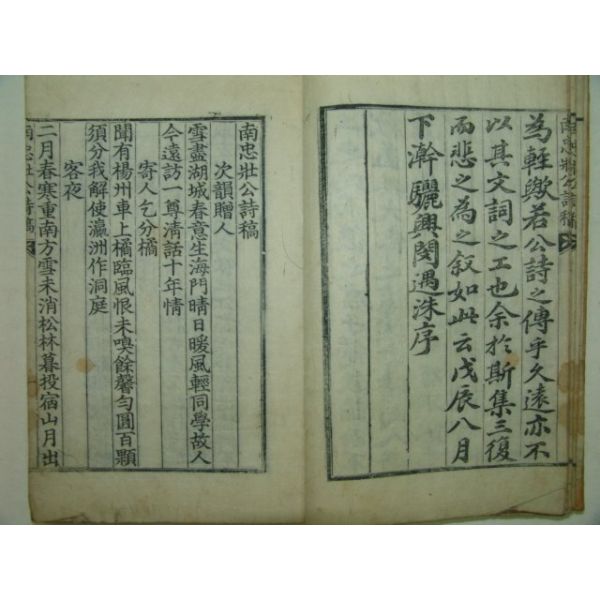 南忠壯公詩稿
為輕歟若公詩之傳乎久遠亦不
以其文詞之工也余於斯集三復
而悲之為之叙如此云戊辰八月
下澣驪興閔遇洙序
南忠壯公詩稿
次韻贈人
雪盡湖城春意生海門晴日暖風輕同學故人
今遠訪一尊清話十年情
寄人乞分橘
聞有楊州車上橘臨風恨未嗅餘馨勻圓百顆
須分我解使瀛洲作洞庭
客夜
二月春寒重南方雪未消松林暮投宿山月出
南忠壯公詩稿